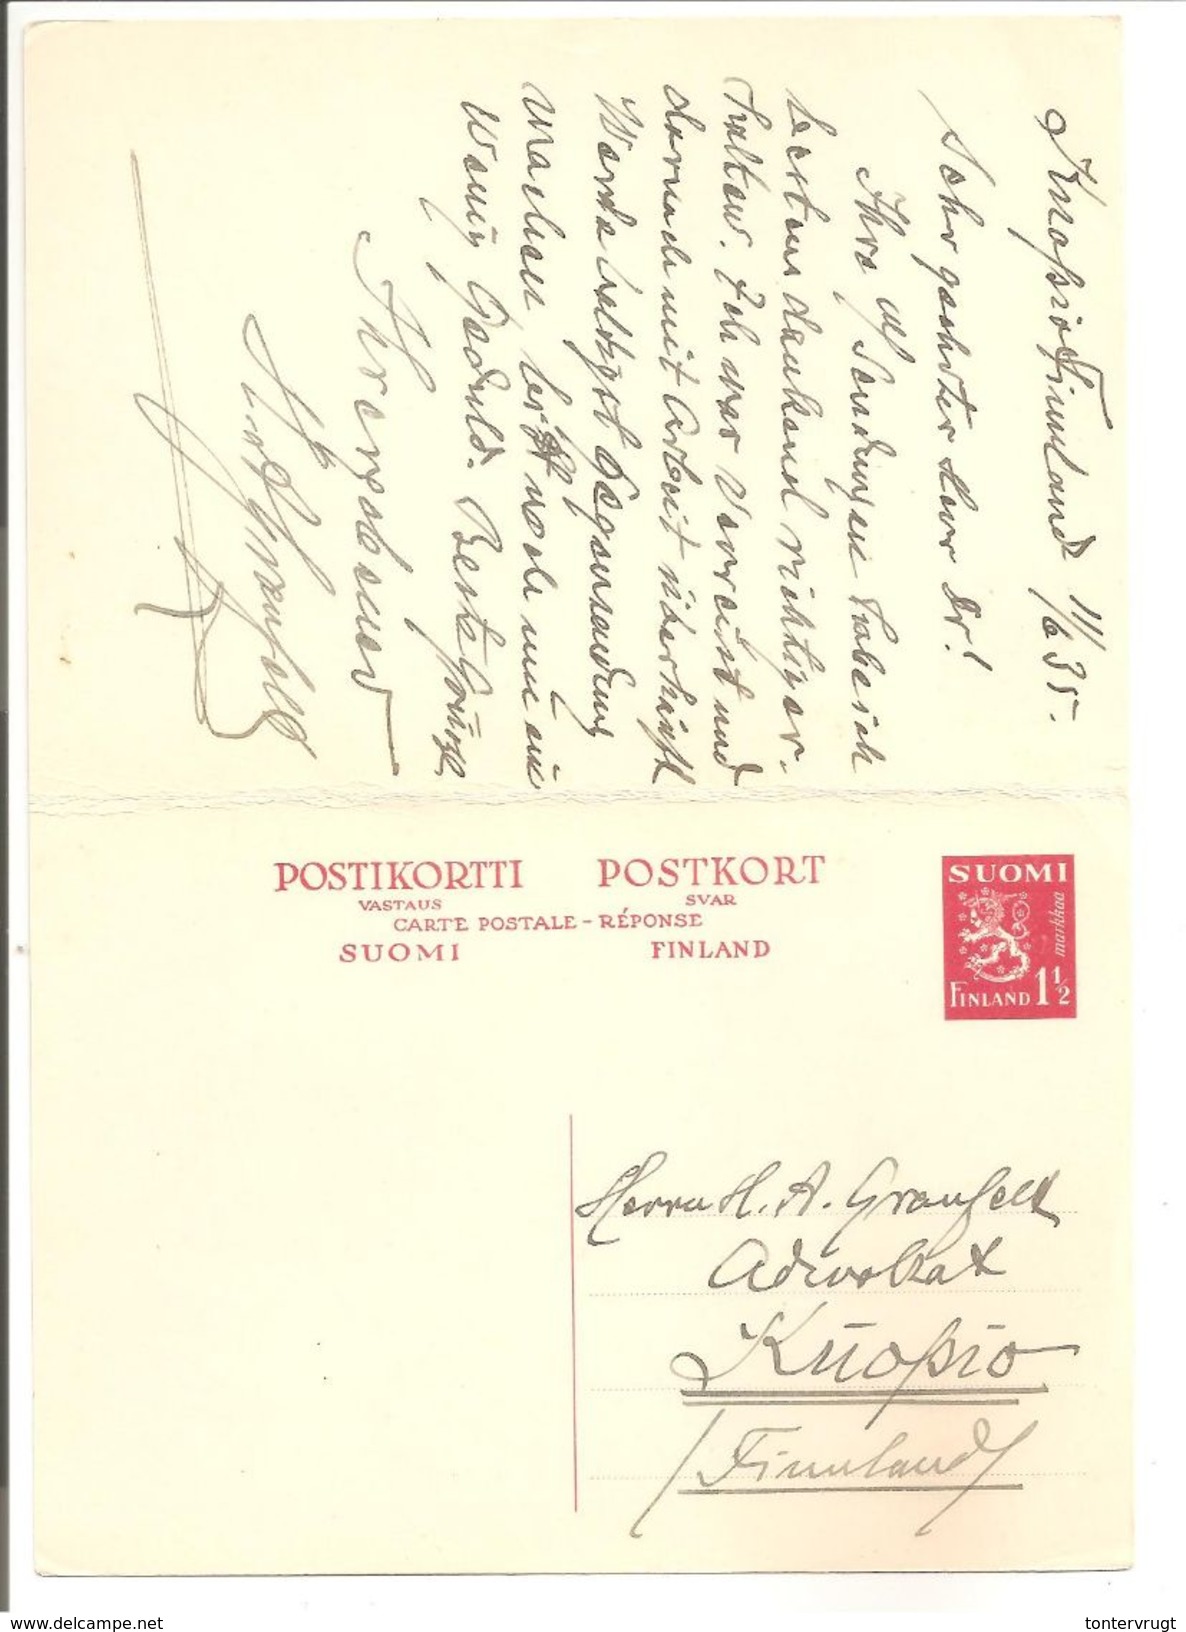 Kuopio Finnland 11/6 35.
Sehr geehrter Herr Dr!
Ihre Sendungen habe ich
bestens dankend richtig er-
halten. Ich war Verreist und
derwede mit Arbeit überhäuft
Werde Gegensendung
Machen noch nie ein
wenig Geduld. Beste Grüsse
Ihr ergebener
POSTIKORTTI POSTKORT
VASTAUS SVAR
CARTE POSTALE – RÉPONSE
SUOMI FINLAND
SUOMI
markkaa
FINLAND 1 1/2
Herrn H. A. Granfelt
Advokat
Kuopio
/Finnland/
delcampe.net
tontervrugt